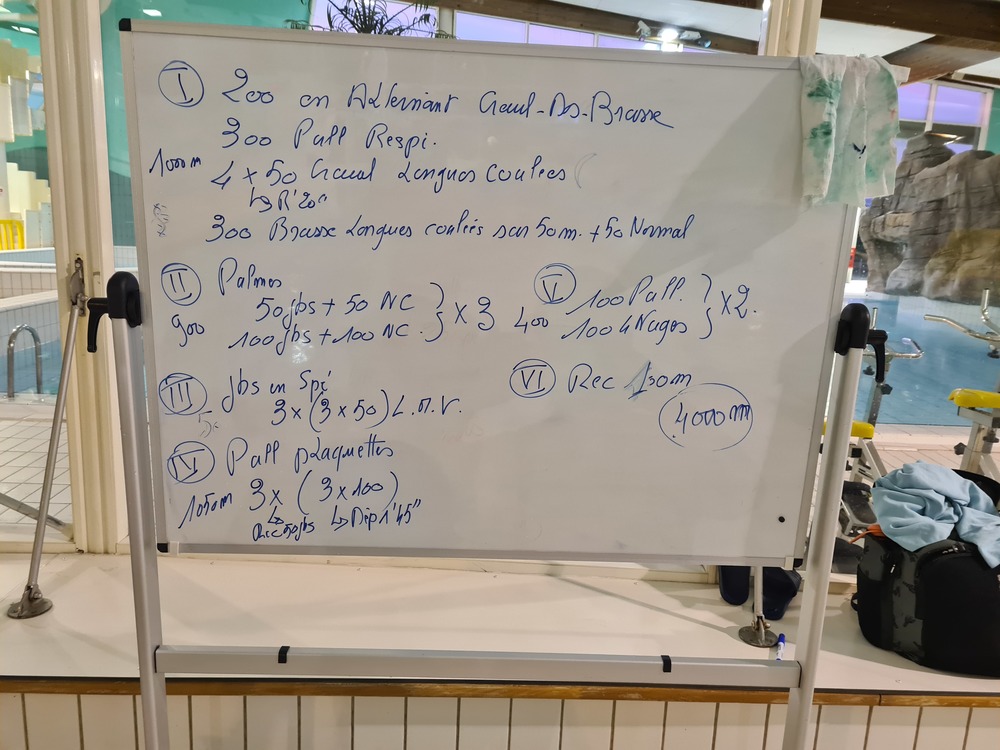 I 200 en Alternant Craul-Ds-Brasse
300 Pull Respi.
1000m 4 x 50 Craul Longues coulées
↳ R'20"
300 Brasse Longues coulées sur 50m. + 50 Normal
II Palmes
900 50 jbs + 50 NC } x 3
100 jbs + 100 NC.
III jbs en Spi
3 x (3 x 50) L.M.V.
IV Pull plaquettes
1050m 3 x (3 x 100)
↳ Rec 50 jbs ↳ Dép 1'45"
V 100 Pull. } x 2.
400 100 4 Nages
VI Rec
4000m